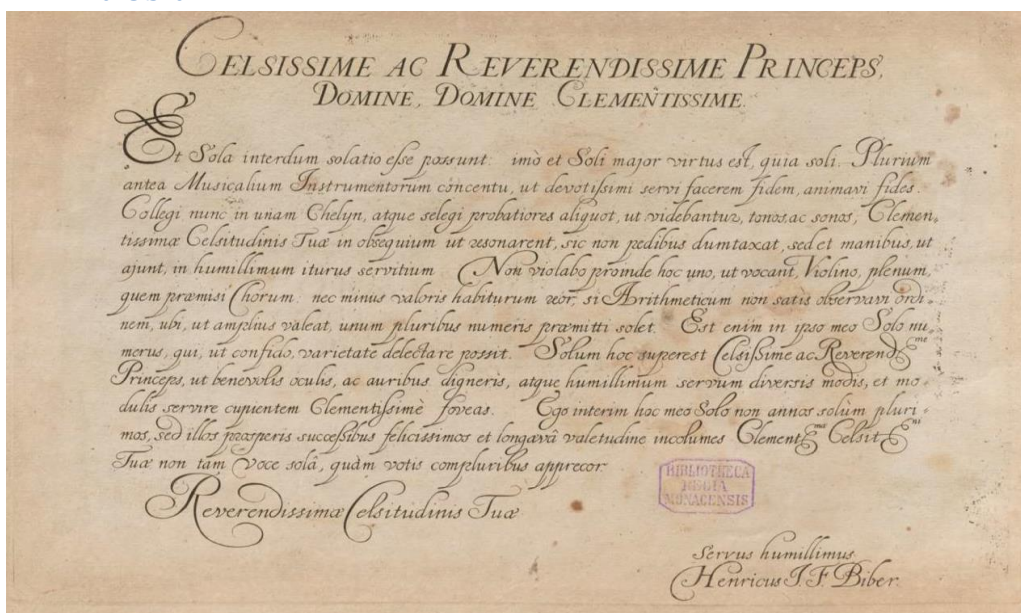 CELSISSIME AC REVERENDISSIME PRINCEPS,
DOMINE, DOMINE CLEMENTISSIME.
Et Sola interdum solatio esse possunt: imò et Soli major virtus est, quia soli. Plurium
antea Musicalium Instrumentorum concentu, ut devotissimi servi facerem fidem, animavi fides.
Collegi nunc in unam Chelyn, atque selegi probatiores aliquot, ut videbantur, tonos, ac sonos, Clemen-
tissimæ Celsitudinis Tuæ in obsequium ut resonarent, sic non pedibus dumtaxat, sed et manibus, ut
ajunt, in humillimum iturus servitium. Non violabo proinde hoc uno, ut vocant, Violino, plenum,
quem præmisi Chorum: nec minus valoris habiturum reor, si Arithmeticum non satis observavi ordi-
nem, ubi, ut amplius valeat, unum pluribus numeris præmitti solet. Est enim in ipso meo Solo nu-
merus, qui, ut confido, varietate delectare possit. Solum hoc superest Celsissime ac Reverend^me
Princeps, ut benevolis oculis, ac auribus digneris, atque humillimum servum diversis modis, et mo-
dulis servire cupientem Clementissimè foveas. Ego interim hoc meo Solo non annos solùm pluri-
mos, sed illos prosperis successibus felicissimos et longævâ valetudine incolumes Clement^mæ Celsit^ni
Tuæ non tàm Voce solâ, quàm votis compluribus apprecor.
Reverendissimæ Celsitudinis Tuæ
BIBLIOTHECA
REGIA
MONACENSIS
Servus humillimus
Henricus I. F. Biber.